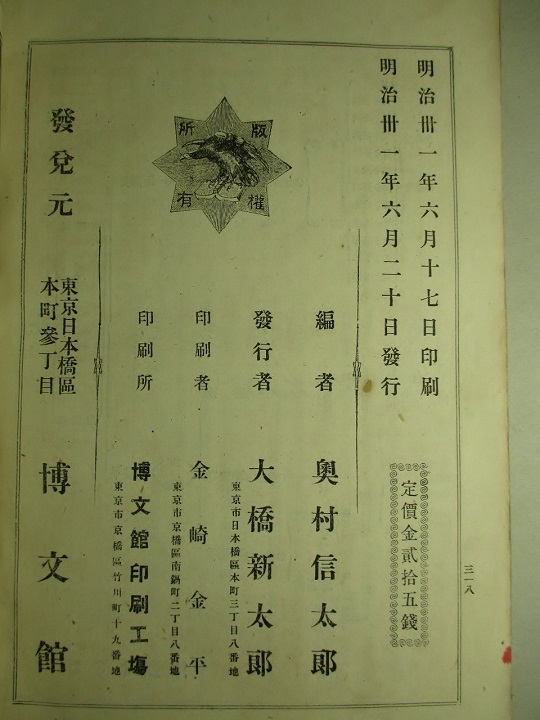 明治卅一年六月十七日印刷
明治卅一年六月二十日發行
定價金貳拾五錢
版權
所有
編者 奧村信太郎
發行者 大橋新太郎
東京市日本橋區本町三丁目八番地
印刷者 金崎金平
東京市京橋區南鍋町二丁目八番地
印刷所 博文館印刷工塲
東京市京橋區竹川町十九番地
發兌元 東京日本橋區
本町參丁目 博文館
三一八